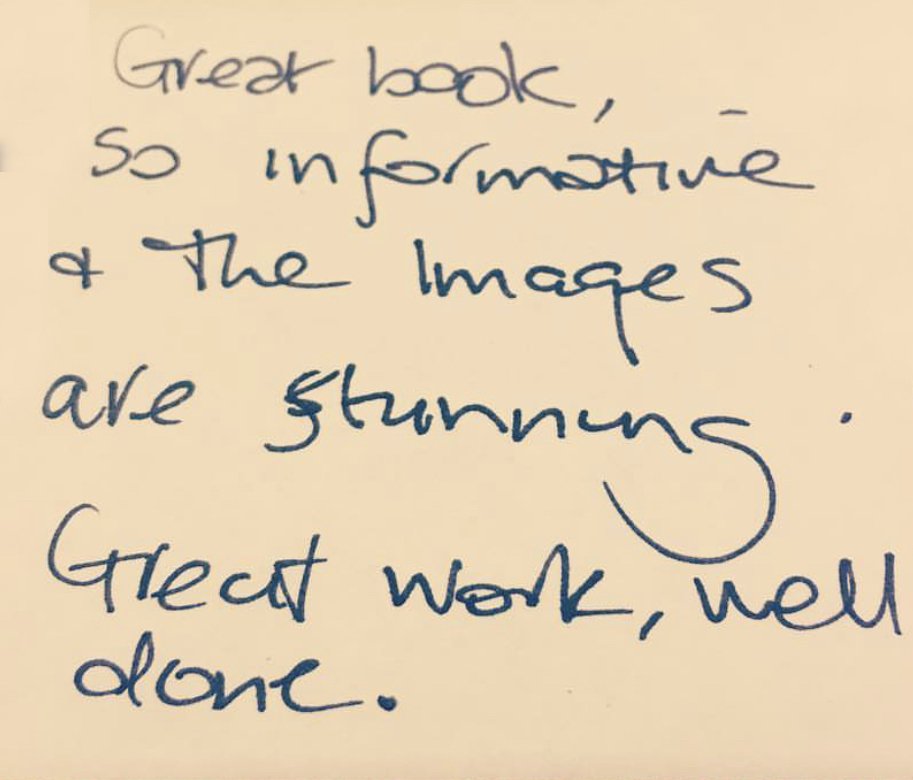 Great book,
so informative
& The Images
are stunning.
Great work, well
done.